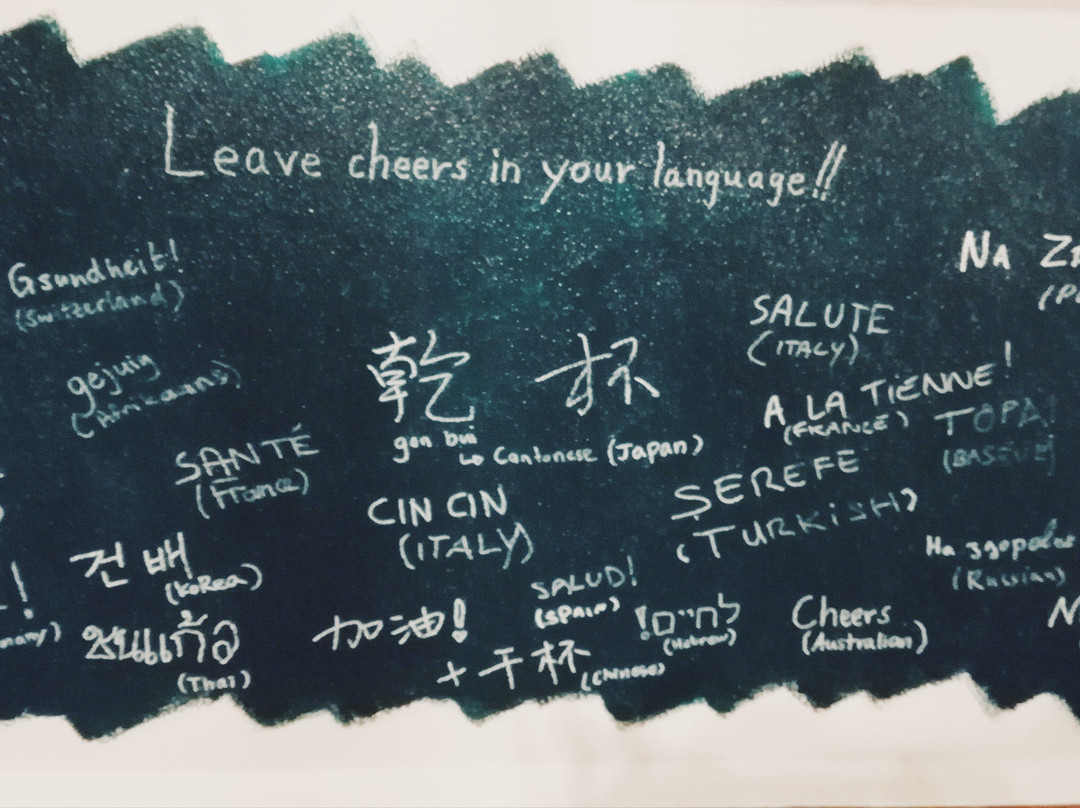 Leave cheers in your language!!
Gsundheit!
(Switzerland)
gejuig
(Afrikaans)
SANTÉ
(France)
건 배
(KoRea)
ชนแก้ว
(Thai)
乾 杯
gon bui
↳ Cantonese (Japan)
CIN CIN
(ITALY)
加油!
+ 干杯 (Chinese)
SALUD!
(SPAIN)
לחיים!
(Hebrew)
SALUTE
(ITALY)
A LA TIENNE!
(FRANCE)
ŞEREFE
(TURKiSH)
Cheers
(Australian)
NA
TOPA!
(BASQUE)
На здоровье
(Russian)